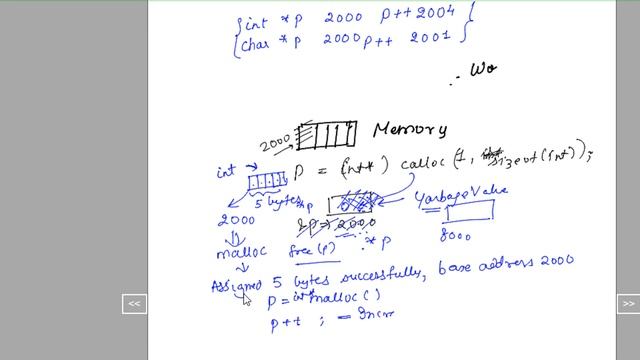 int *p 2000 p++ 2004
char *p 2000 p++ 2001
∴ Wo
2000 Memory
int p = (int*) calloc(1, sizeof(int));
5 bytes *p Garbage Value
2000 &p => 2000 8000
malloc free(p) *p
Assigned 5 bytes successfully, base address 2000
p = int* malloc()
p++ ; = Incr
<< >>